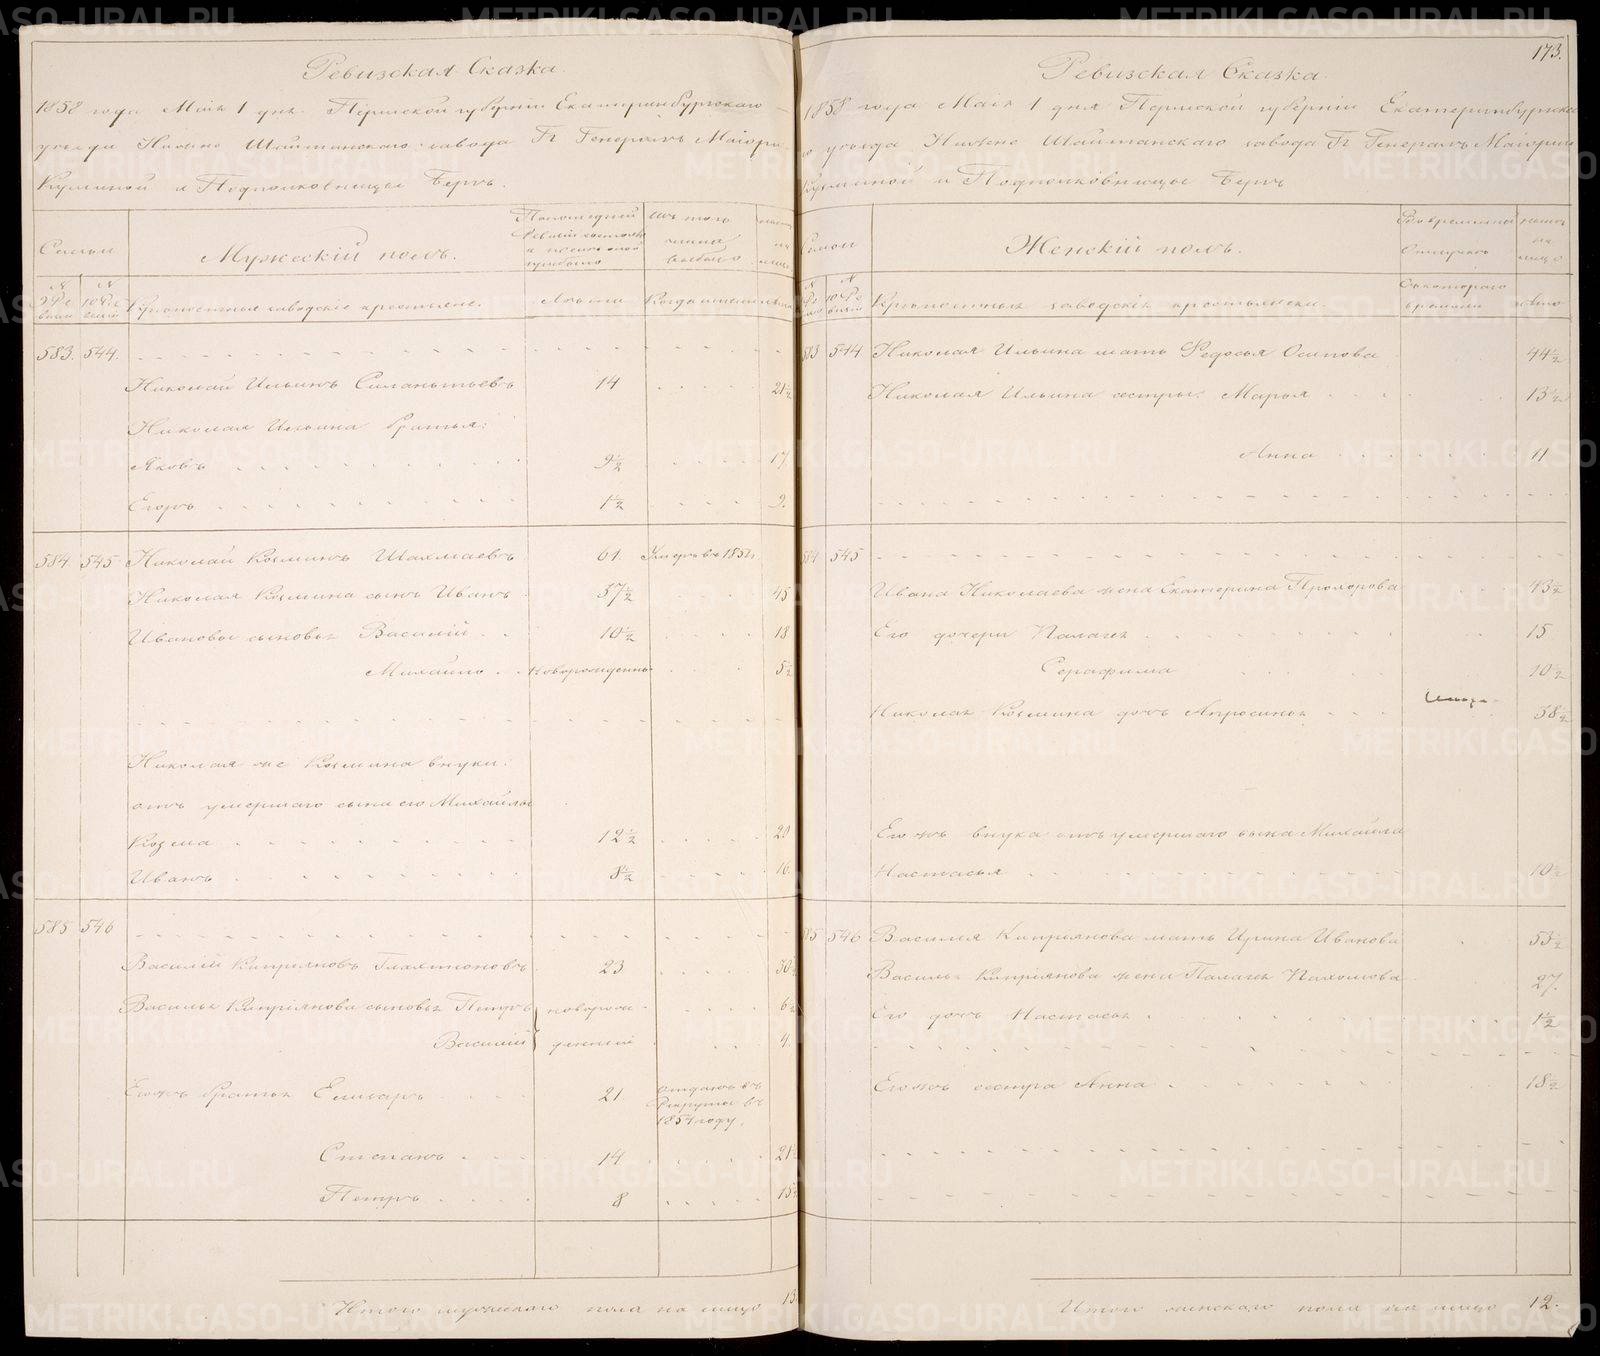 Ревизская Сказка.
1858 года Маія 1 дня. Пермской губерніи Екатеринбургскаго
уезда Нижне Шайтанскаго завода Гг Генералъ Маіорши
Кузминой и Подполковницы Бергъ.
Семьи
Мужескій полъ.
По последней Ревизіи состояло и после оной прибыло
Изъ того числа выбыло
№ 9 Ре визіи
№ 10 Ре визіи
Крепостные заводскіе крестьяне.
Лета
Когда именно
Лета
583. 544.
Николай Ильинъ Силантьевъ 14 21½
Николая Ильина братья:
Яковъ 9½ 17.
Егоръ 1½ 9.
584. 545 Николай Козминъ Шахмаевъ 61. Умеръ въ 1852 г
Николая Козмина сынъ Иванъ 37½ 45
Ивановы сыновья Василій 10½ 18
Михайло новорожденны 5½
Николая же Козмина внуки:
отъ умершаго сына его Михайлы
Козма 12½ 20
Иванъ 8½ 16.
585 546
Василій Кипріяновъ Галахтіоновъ 23 30½
Василья Кипріянова сыновья Петръ новорож- 6½
Василій денные 4.
Егожъ братья Елизаръ 21 отданъ въ Рекруты въ 1854 году.
Степанъ 14 21½
Петръ 8 15½
Итого мужескаго пола на лицо 13
173.
Ревизская Сказка.
1858 года Маія 1 дня Пермской губерніи Екатеринбургска
го уезда Нижне Шайтанскаго завода Гг Генералъ Маіорши
Кузминой и Подполковницы Бергъ
Семьи
Женскій полъ.
Во временной Отлучке
налицо
Крепостныя заводскія крестьянки.
Съ котораго времени
Лета
583 544 Николая Ильина мать Федосья Осипова 44½
Николая Ильина сестры: Марья 13½
Анна 11
584 545
Ивана Николаева жена Екатерина Прохорова 43½
Его дочери Палагея 15
Серафима 10½
Николая Козмина дочь Апросинья 38½
Егожъ внука отъ умершаго сына Михайла
Настасья 10½
585 546 Василья Кипріянова мать Ирина Иванова 53½
Василья Кипріянова жена Палагея Пахомова 27.
Его дочь Настасья 1½
Егожъ сестра Анна 18½
Итого женскаго пола на лицо 12.
METRIKI.GASO-URAL.RU